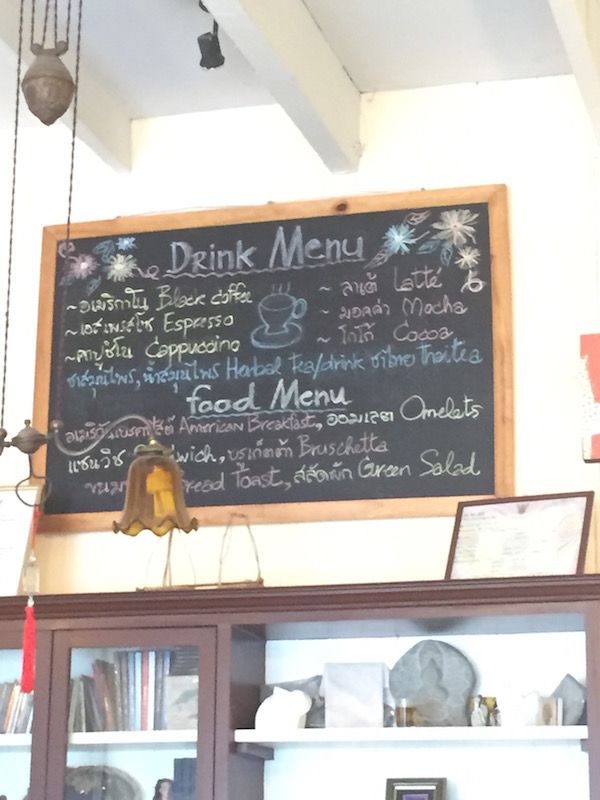 Drink Menu
~ อเมริกาโน Black coffee
~ เอสเพรสโซ Espresso
~ คาปูชิโน Cappuccino
~ ลาเต้ Latté
~ มอคค่า Mocha
~ โกโก้ Cocoa
ชาสมุนไพร, น้ำสมุนไพร Herbal tea/drink ชาไทย Thai tea
food Menu
American Breakfast, ออมเลต Omelets
แซนวิช บรูเก็ตต้า Bruschetta
Toast, สลัดผัก Green Salad